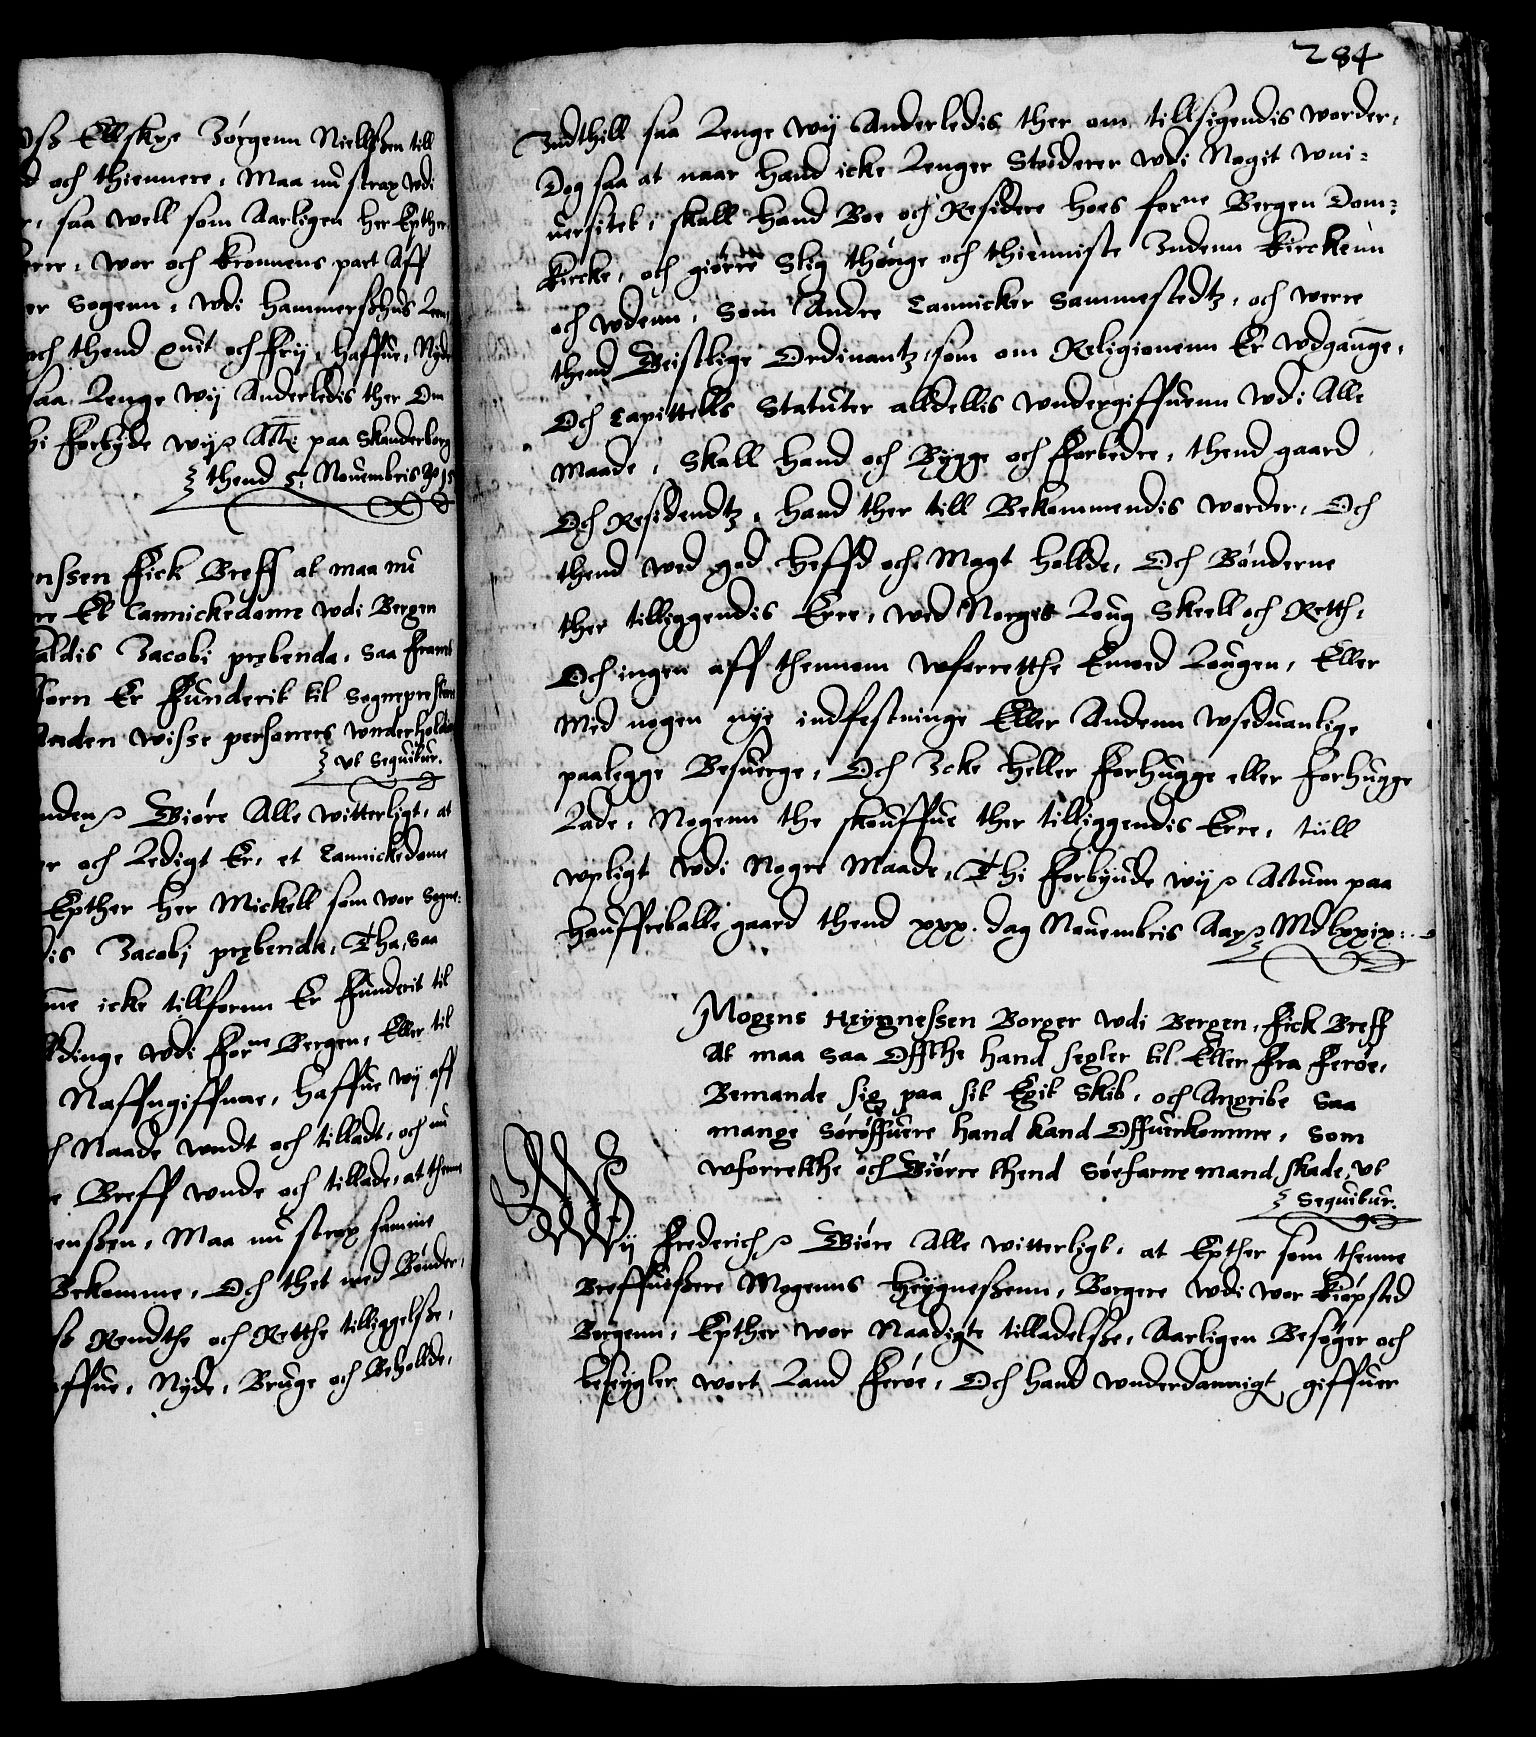 oss Ellskee Jörgenn Niellssen till
d och thiennere, Maa nu strax wdi
saa well som Aarligen her Epther
wor och Kronnens part Aff
er Sogenn, wdi Hammersshus Len
och thend quit och frij, haffue, Nyde
saa Lenge wij Anderledis ther Om
hi forbyde wij p Att: paa Skanderborg
thend 5: Nouembris Ao 15
enssen fick Breff at maa nu
re Et Cannickedome wdi Bergen
aldis Jacobi prebenda, saa framt
forn Er funderit til Sogneprestens
Anden wisse personers wnderholding
vt Sequitur.
nden p Giöre Alle witterligt, at
er och Ledigt Er, et Cannickedome
Epther Her Mickell som wor Sogne-
dis Jacobj prebenda, Tha, saa
me icke tillfornn Er funderit til
ldinge wdi forne Bergen, Eller til
Naffngiffnne, haffue wij aff
h Naade wndt och tilladt, och nu
e Breff wnde och tillade, at thenn
enssen, Maa nu strax samme
Bekomme, Och thet med Bönder,
ss Rendthe och Retthe tilliggelsse,
affue, Nyde, Bruge och Beholde,
284
Indthill saa Lenge wij Anderledis ther om tillsigendis worder,
Dog saa at naar hand icke Lenger Stúderer wdi Nogit wni-
uersitet, skall hand Boe och Residere hoes forne Bergen Dom-
kircke, och giörre Slig thönge och thienniste Indenn Kirckenn
och wdenn, Som Andre Cannicker Sammestedtz, och werre
thend Geistlige Ordinantz, som om Religionenn Er wdgaunge,
Och Capittells Statuter alldellis wndergiffuenn wdi Alle
Maade, Skall hand och Bygge och forbedre, thend gaard
Och Residendtz, hand ther till Bekommendis worder, Och
thend wed god heffd och Magt hollde, Och Bönderne
ther tilliggendis Erre, wed Norges Loug Skeell och Retth,
Och ingen aff thennom wforretthe Emod Lougen, Eller
Med nogen nye indfestninge Eller Andenn wseduanlige
paalegge Besuerge, Och Icke heller forhugge eller forhugge
Lade, Nogenn the skouffue ther tilliggendis Erre, till
wpligt wdi Nogre Maade, Thi forbiude wij p Actum paa
Hauffreballe gaard thend xxx. dag Nouembris Aar p Mdlxxix.
Mogens Heygnessen Borger wdi Bergen, fick Breff
At maa saa Offthe hand segler til Eller fra Feröe,
Bemande sig paa sit Egit Skib, och Angribe saa
mange Söröffuere hand kand Offuerkomme, som
wforretthe och Giörre thend Söefarne mand skade, vt
Sequitur.
Wij Frederich p Giöre Alle witterligt, at Epther som thenne
Breffuissere Mogenns Heygnessenn, Borgere wdi wor Kiöpsted
Bergenn, Epther wor Naadigte tilladelsse, Aarligen Besöger och
beseygler wort Land Feröe, Och hand wnderdannigt giffuer